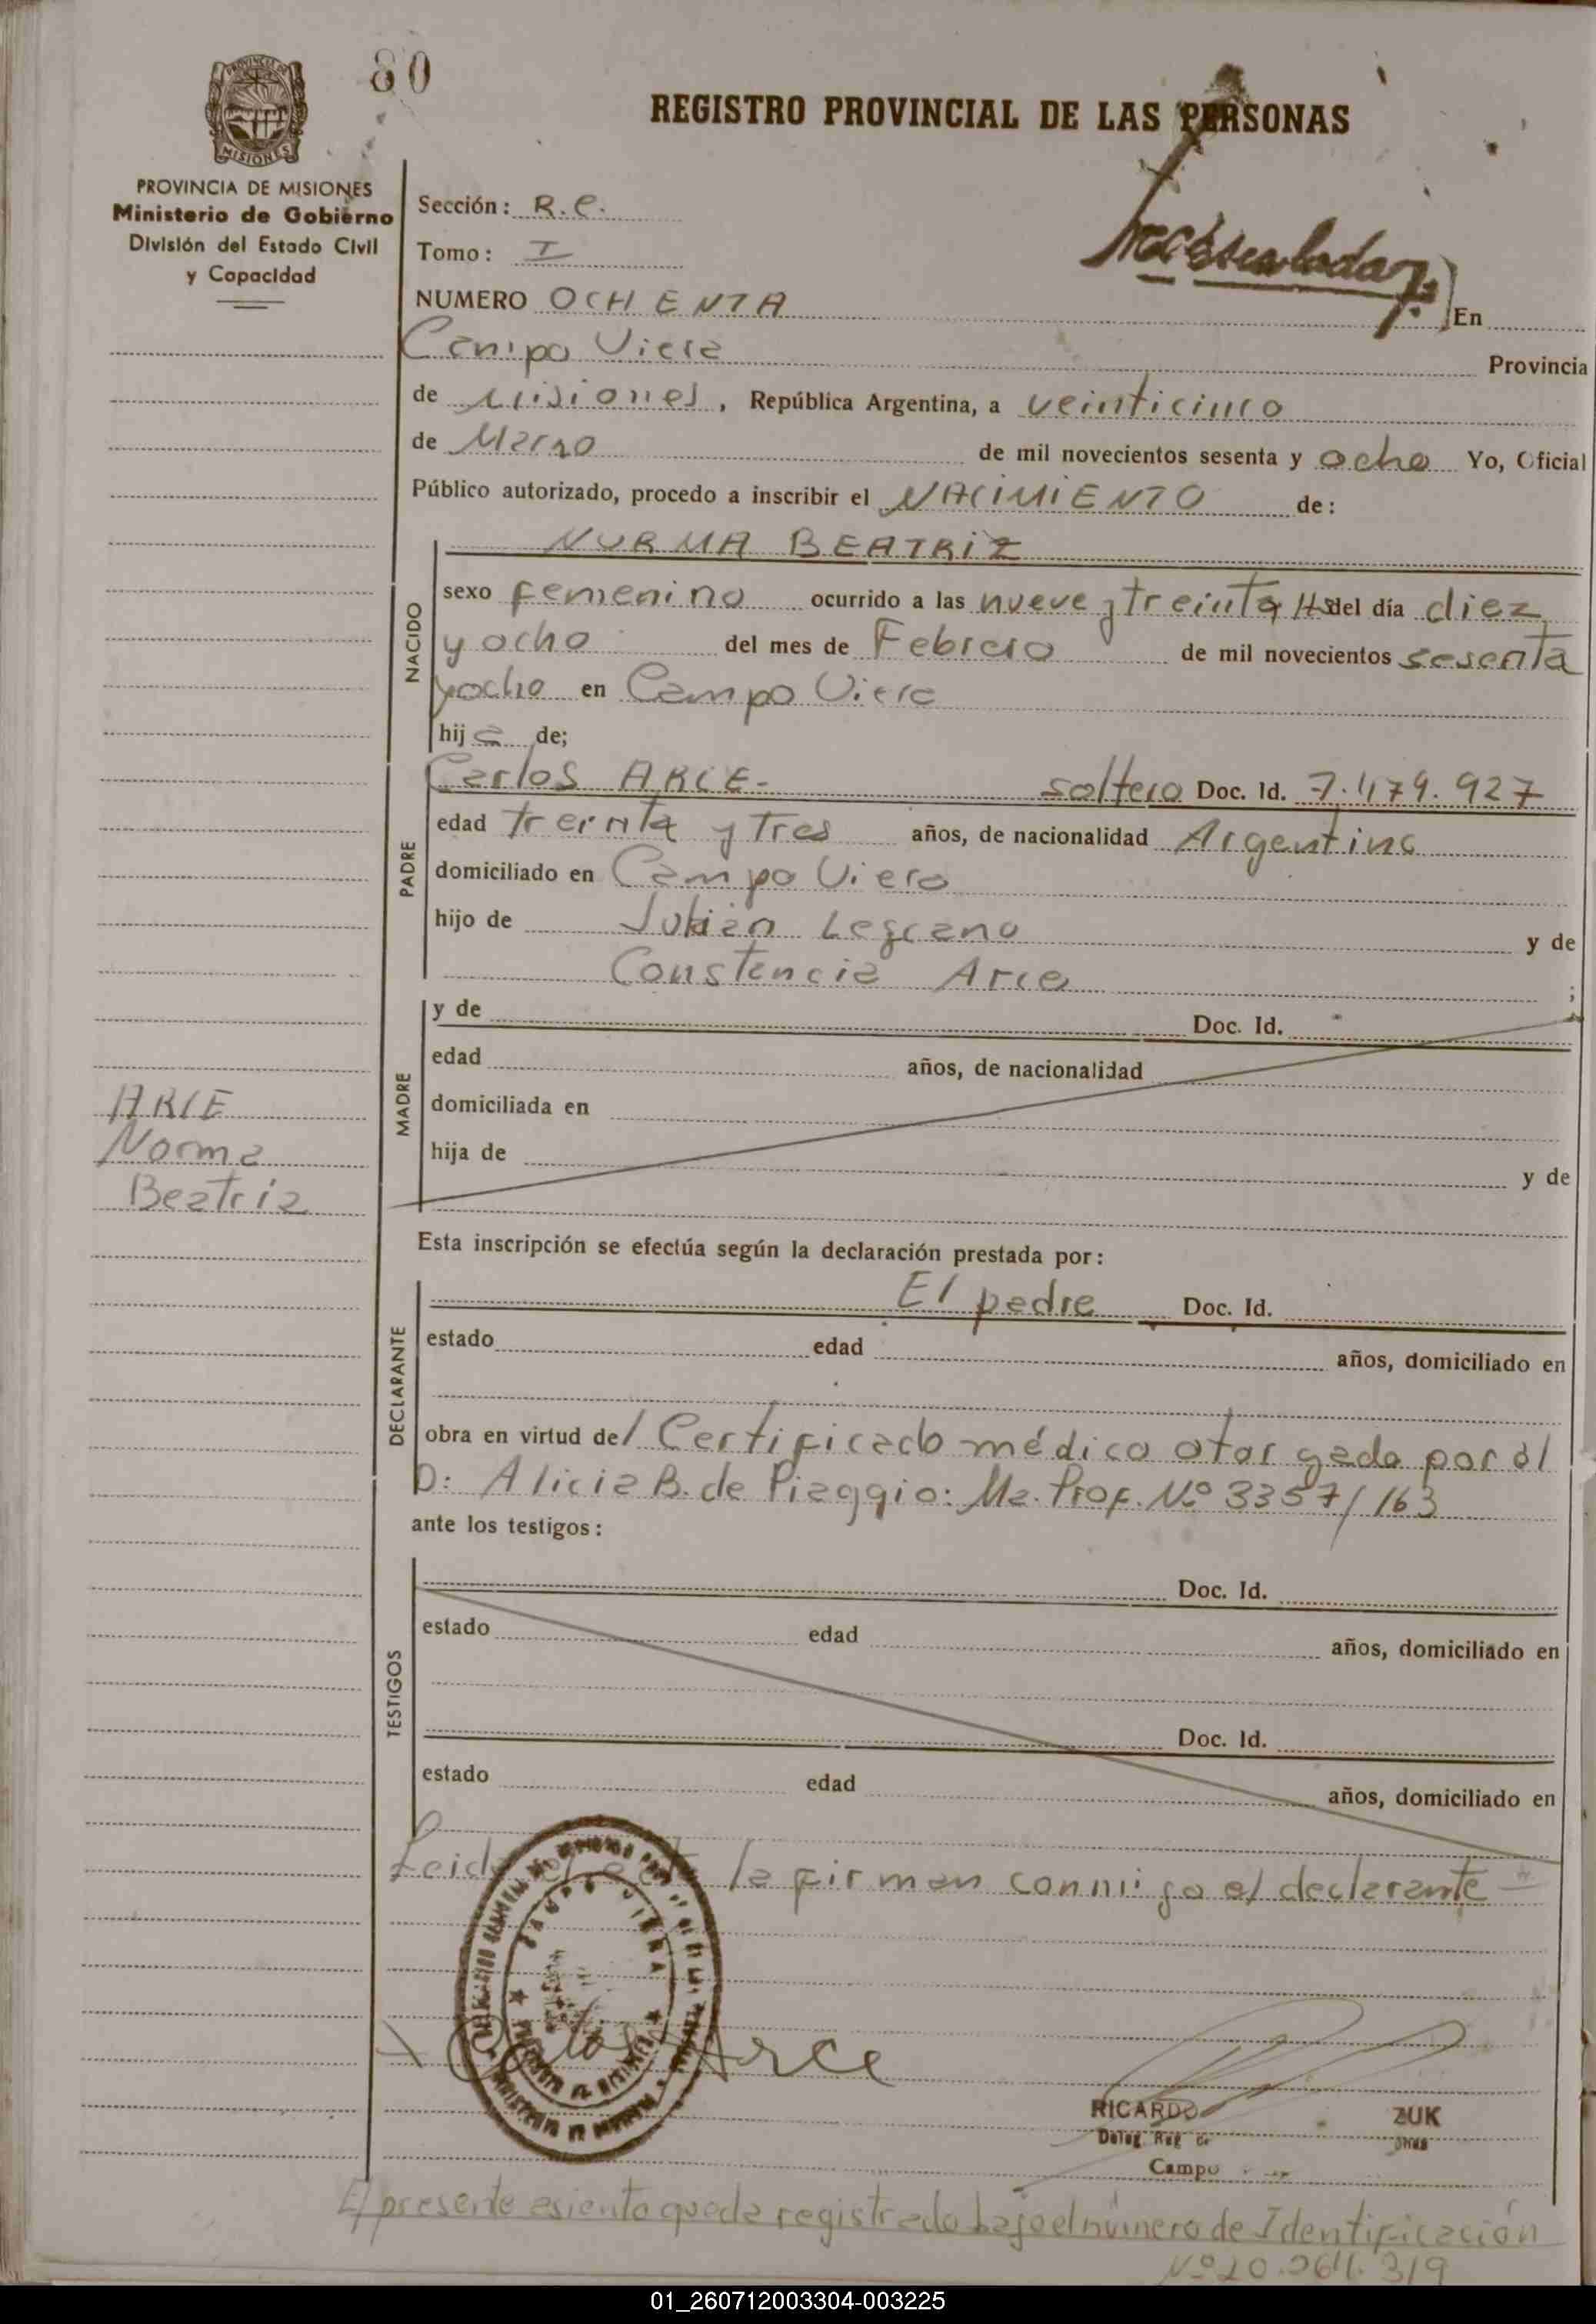 80
REGISTRO PROVINCIAL DE LAS PERSONAS
PROVINCIA DE MISIONES
Ministerio de Gobierno
División del Estado Civil
y Capacidad
Sección: R.C.
Tomo: I
NUMERO OCHENTA En
Campo Viera Provincia
de Misiones, República Argentina, a veinticinco
de Marzo de mil novecientos sesenta y ocho Yo, Oficial
Público autorizado, procedo a inscribir el NACIMIENTO de:
NORMA BEATRIZ
NACIDO
sexo femenino ocurrido a las nueve y treinta Hs del día diez
y ocho del mes de Febrero de mil novecientos sesenta
y ocho en Campo Viera
hija de;
PADRE
Carlos ARCE- soltero Doc. Id. 7.479.927
edad Treinta y Tres años, de nacionalidad Argentina
domiciliado en Campo Viera
hijo de Julián Legrano y de
Constancia Arce ;
MADRE
y de Doc. Id.
edad años, de nacionalidad
domiciliada en
hija de y de
ARCE
Norma
Beatriz
Esta inscripción se efectúa según la declaración prestada por:
DECLARANTE
El padre Doc. Id.
estado edad años, domiciliado en
obra en virtud del Certificado médico otorgado por el
D: Alicia B. de Piaggio: Ma. Prof. Nº 3357/163
ante los testigos:
TESTIGOS
Doc. Id.
estado edad años, domiciliado en
Doc. Id.
estado edad años, domiciliado en
Leida el acta la firman conmigo el declarante
Carlos Arce
RICARDO ZUK
Deleg. Reg.
Campo
El presente asiento queda registrado bajo el número de Identificación
Nº 20.264.319
01_260712003304-003225